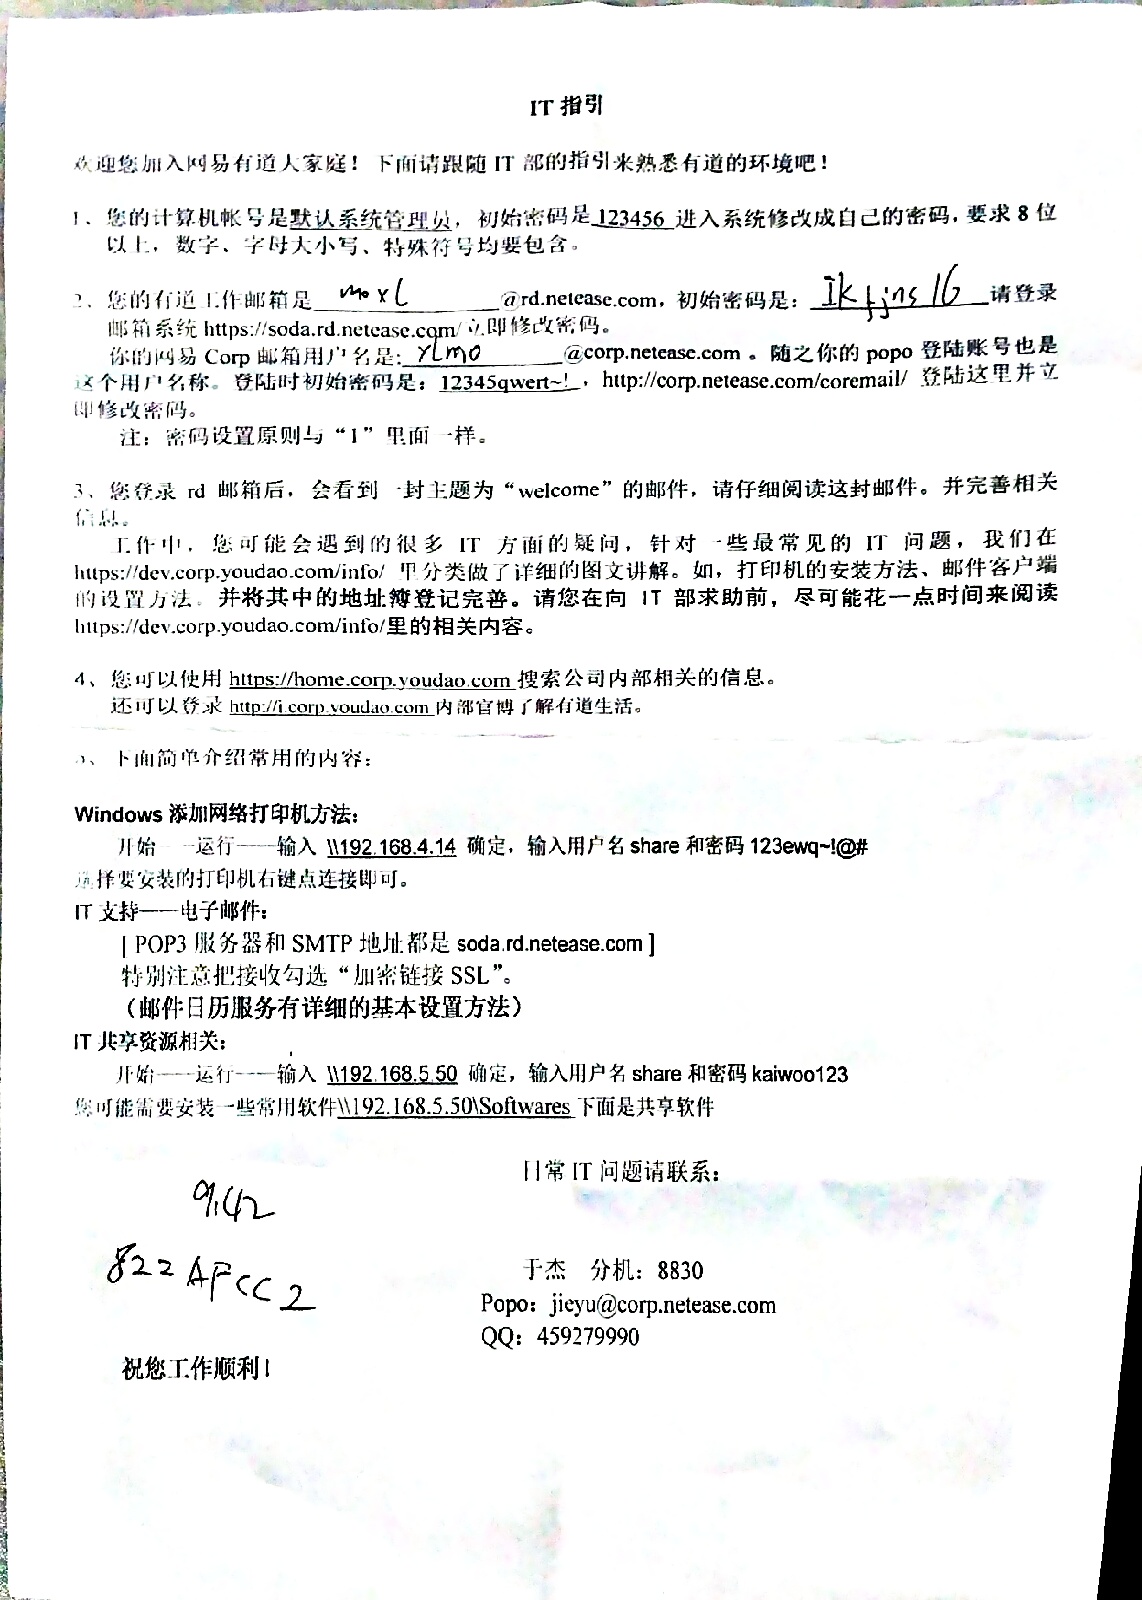 IT 指引
欢迎您加入网易有道大家庭！下面请跟随 IT 部的指引来熟悉有道的环境吧！
1、您的计算机帐号是默认系统管理员，初始密码是 123456 进入系统修改成自己的密码，要求 8 位
以上，数字、字母大小写、特殊符号均要包含。
2、您的有道工作邮箱是 moxl @rd.netease.com，初始密码是： 请登录
邮箱系统 https://soda.rd.netease.com/ 立即修改密码。
你的网易 Corp 邮箱用户名是: xlmo @corp.netease.com 。随之你的 popo 登陆账号也是
这个用户名称。登陆时初始密码是：12345qwert~! ，http://corp.netease.com/coremail/ 登陆这里并立
即修改密码。
注：密码设置原则与“1”里面一样。
3、您登录 rd 邮箱后，会看到一封主题为“welcome”的邮件，请仔细阅读这封邮件。并完善相关
信息。
工作中，您可能会遇到的很多 IT 方面的疑问，针对一些最常见的 IT 问题，我们在
https://dev.corp.youdao.com/info/ 里分类做了详细的图文讲解。如，打印机的安装方法、邮件客户端
的设置方法。并将其中的地址簿登记完善。请您在向 IT 部求助前，尽可能花一点时间来阅读
https://dev.corp.youdao.com/info/里的相关内容。
4、您可以使用 https://home.corp.youdao.com 搜索公司内部相关的信息。
还可以登录 http://i.corp.youdao.com 内部官博了解有道生活。
5、下面简单介绍常用的内容：
Windows 添加网络打印机方法：
开始——运行——输入 \\192.168.4.14 确定，输入用户名 share 和密码 123ewq~!@#
选择要安装的打印机右键点连接即可。
IT 支持——电子邮件：
[ POP3 服务器和 SMTP 地址都是 soda.rd.netease.com ]
特别注意把接收勾选“加密链接 SSL”。
（邮件日历服务有详细的基本设置方法）
IT 共享资源相关：
开始——运行——输入 \\192.168.5.50 确定，输入用户名 share 和密码 kaiwoo123
您可能需要安装一些常用软件\\192.168.5.50\Softwares 下面是共享软件
日常 IT 问题请联系：
9:42
822AFCC2
于杰 分机：8830
Popo：jieyu@corp.netease.com
QQ：459279990
祝您工作顺利！